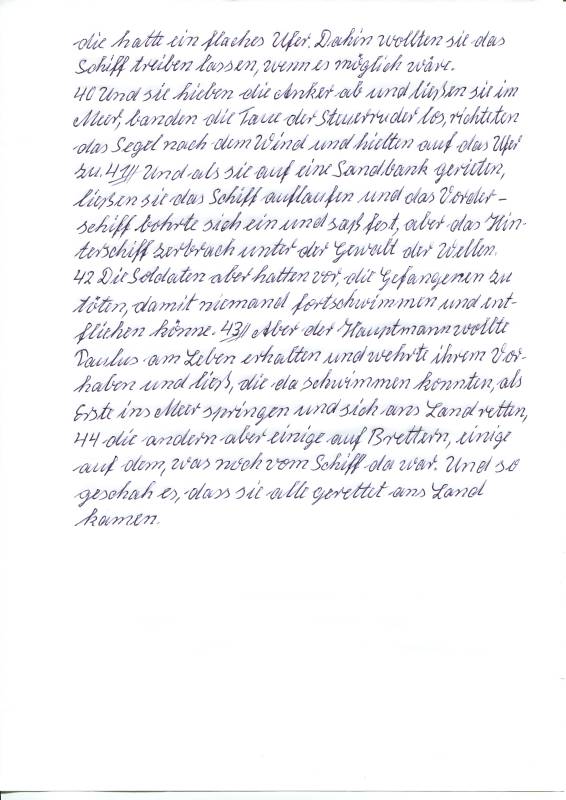 die hatte ein flaches Ufer. Dahin wollten sie das
Schiff treiben lassen, wenn es möglich wäre.
40 Und sie hieben die Anker ab und ließen sie im
Meer, banden die Taue der Steuerruder los, richteten
das Segel nach dem Wind und hielten auf das Ufer
zu. 41// Und als sie auf eine Sandbank gerieten,
ließen sie das Schiff auflaufen und das Vorder-
schiff bohrte sich ein und saß fest, aber das Hin-
terschiff zerbrach unter der Gewalt der Wellen.
42 Die Soldaten aber hatten vor, die Gefangenen zu
töten, damit niemand fortschwimmen und ent-
fliehen könne. 43// Aber der Hauptmann wollte
Paulus am Leben erhalten und wehrte ihrem Vor-
haben und ließ, die da schwimmen konnten, als
Erste ins Meer springen und sich ans Land retten,
44 die andern aber einige auf Brettern, einige
auf dem, was noch vom Schiff da war. Und so
geschah es, dass sie alle gerettet ans Land
kamen.